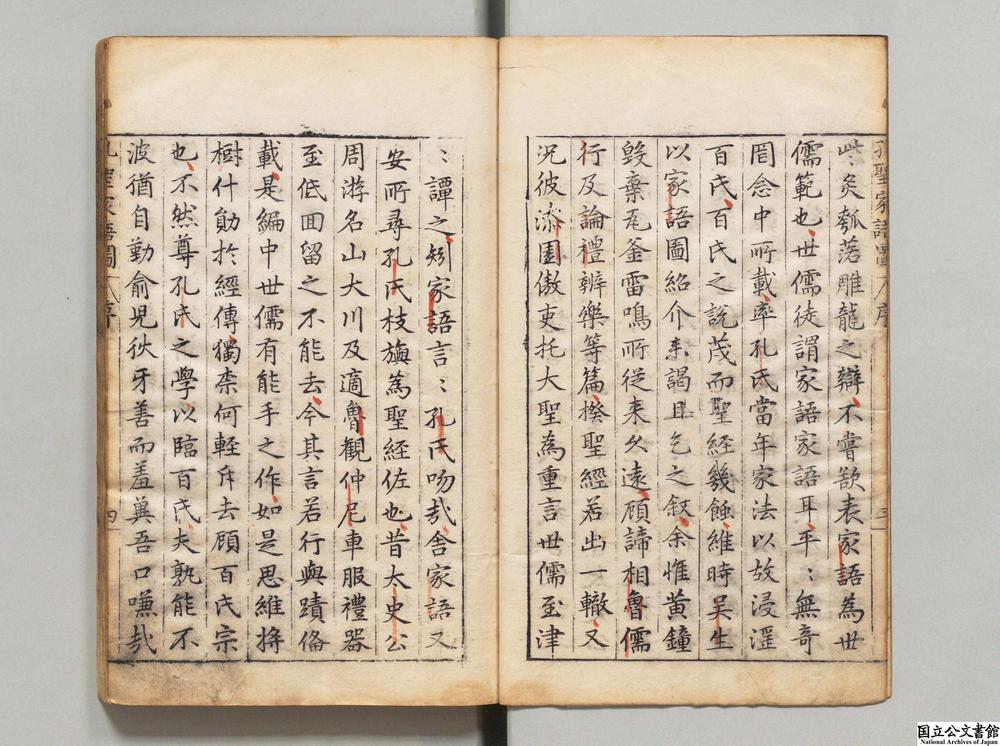 孔聖家語圖 序 三
炙瓠落雕龍之辯不嘗欲表家語為世
儒範也世儒徒謂家語家語耳平〻無奇
罔念中所載率孔氏當年家法以故浸淫
百氏百氏之說茂而聖經幾蝕維時吴生
以家語圖紹介来謁且乞之叙余惟黄鐘
毀棄瓦釜雷鳴所從来久遠顧諦相魯儒
行及論禮辨樂等篇揆聖經若出一轍又
況彼漆園傲吏托大聖為重言世儒至津
〻譚之矧家語言〻孔氏吻㢤舍家語又
安所尋孔氏枝旒為聖経佐也昔太史公
周游名山大川及適魯觀仲尼車服禮器
至低回留之不能去今其言若行與蹟俻
載是編中世儒有能手之作如是思維将
樹什勛於經傳獨柰何輊斥去顧百氏宗
也不然尊孔氏之學以臨百氏夫孰能不
波猶自勤俞兒狄牙善而羞與吾口嗛㢤
孔聖家語圖 序 四
国立公文書館
National Archives of Japan